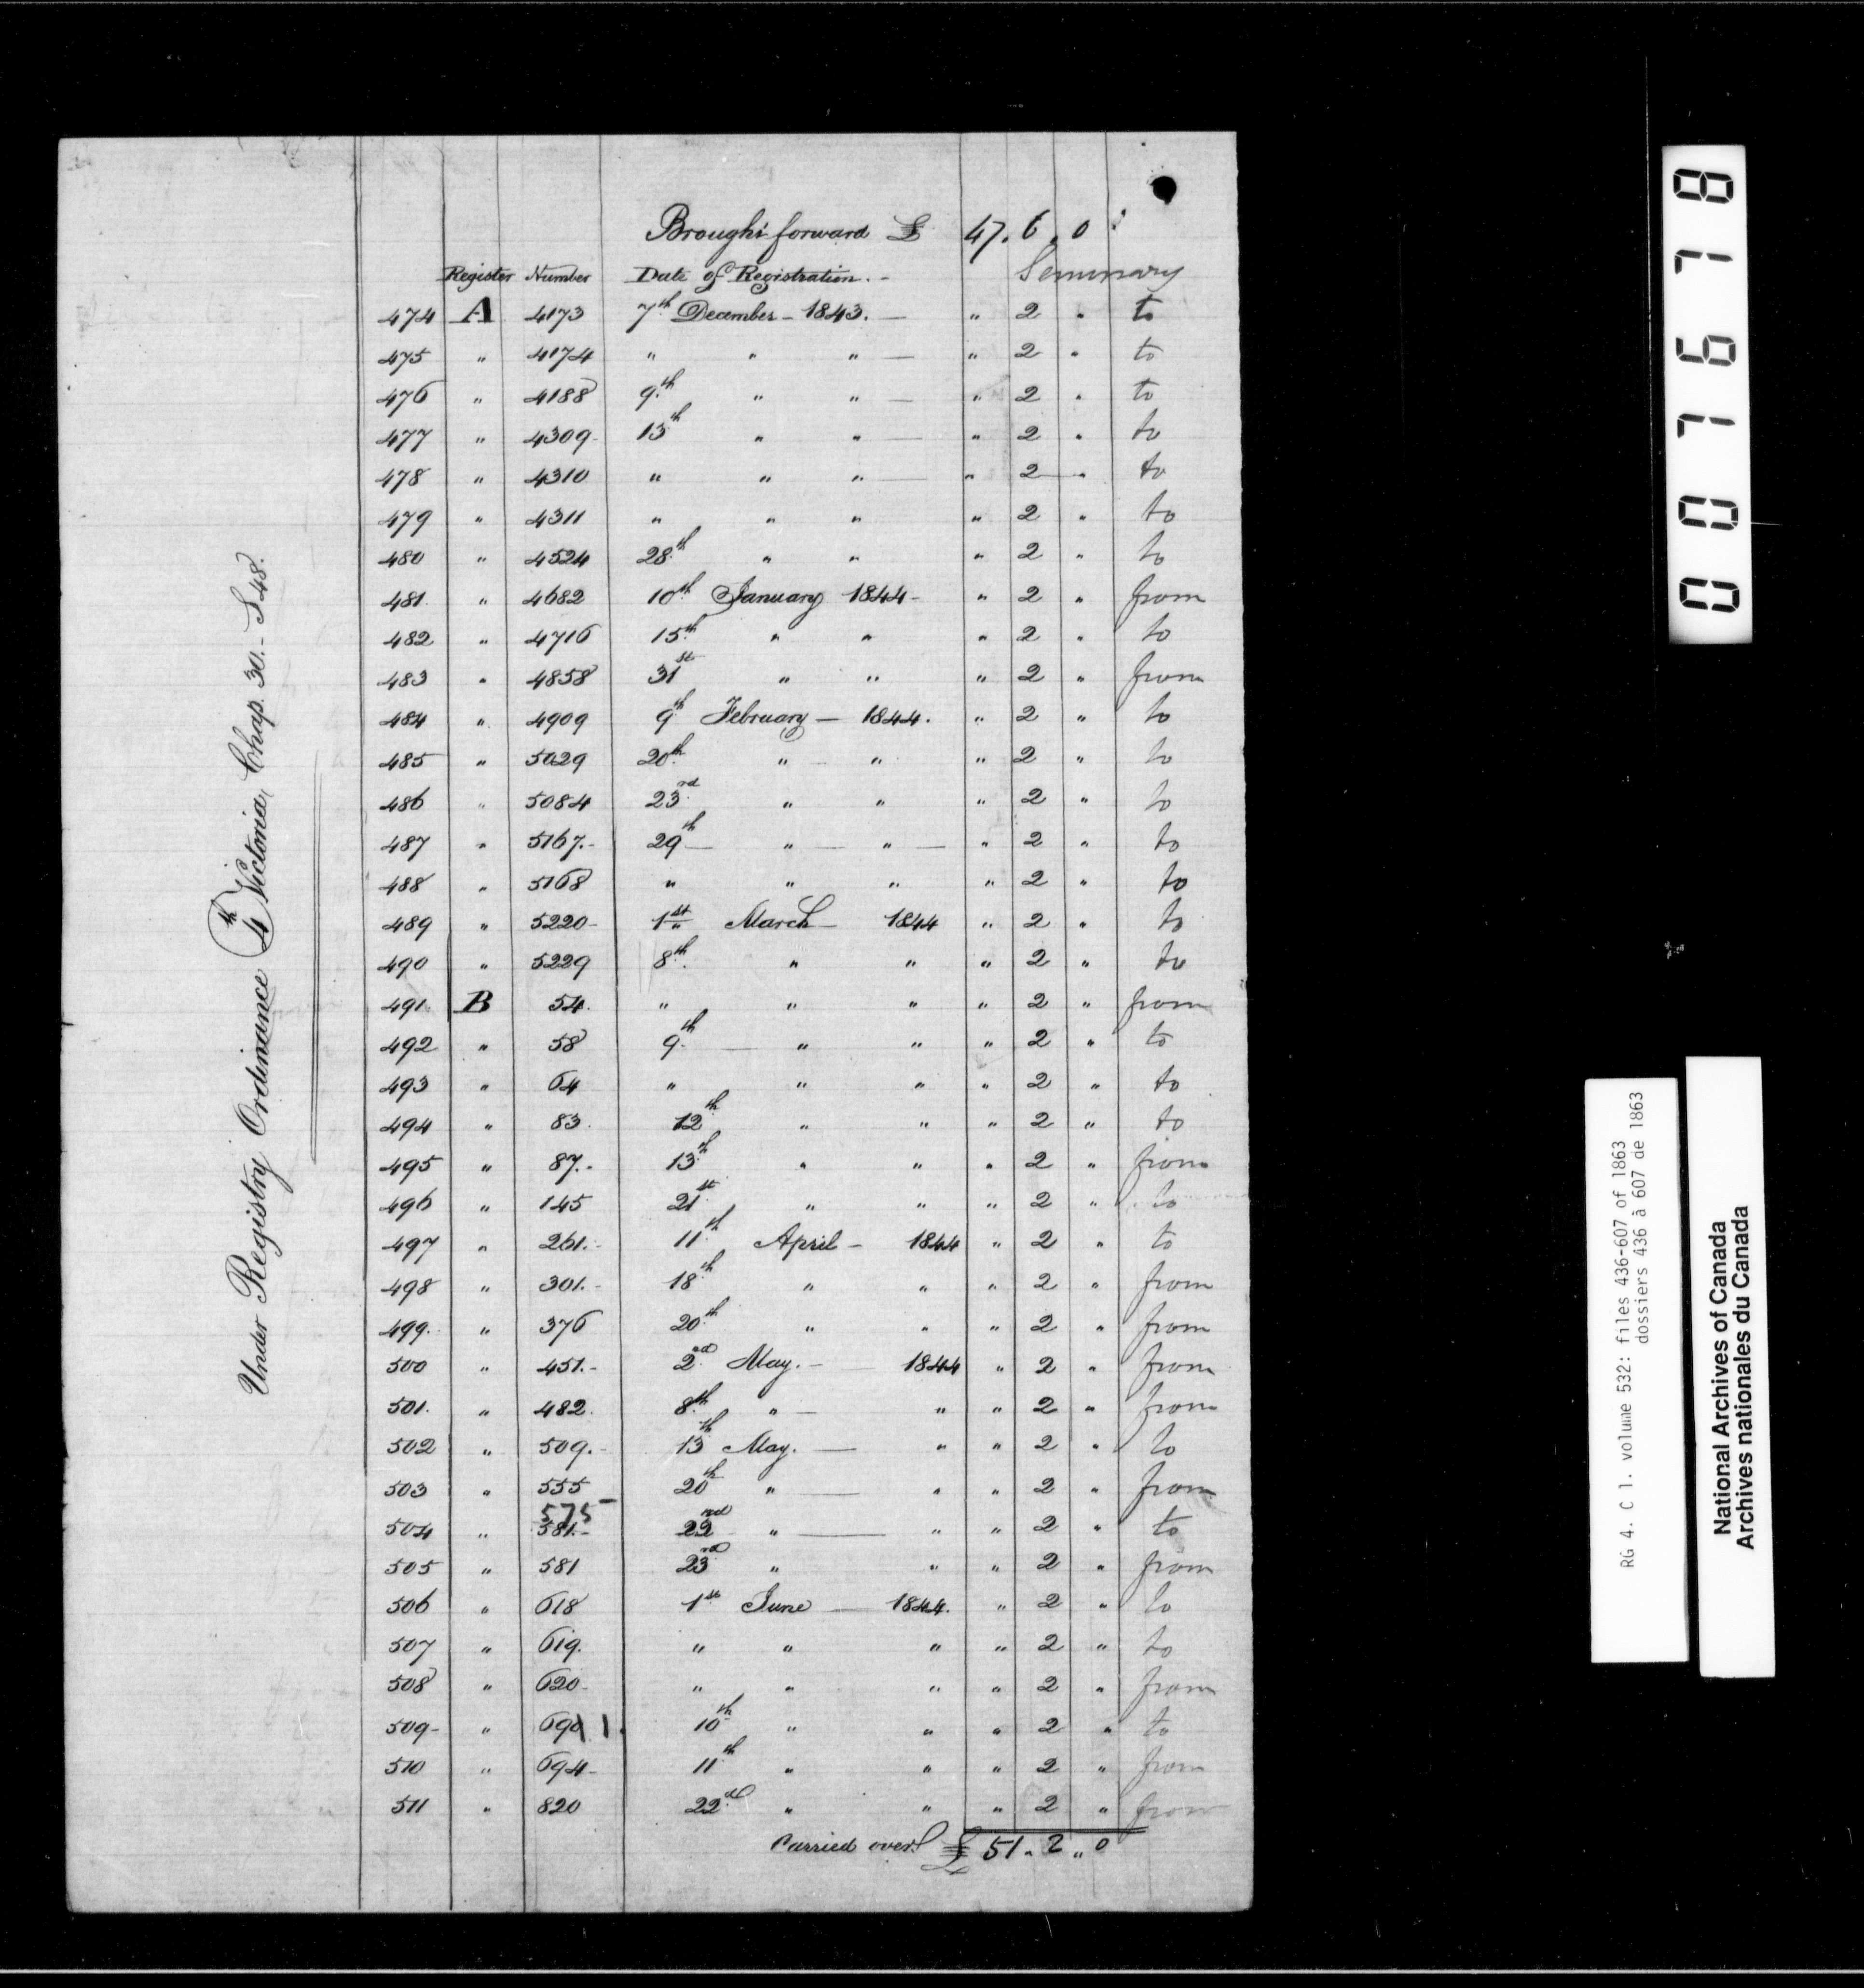 Brought forward £ 47. 6. 0
Register Number Date of Registration. Seminary
474 A 4173 7th December - 1843. — " 2 " to
475 " 4174 " " " — " 2 " to
476 " 4188 9th " " — " 2 " to
477 " 4309 13th " " — " 2 " to
478 " 4310 " " " — " 2 " to
479 " 4311 " " " " 2 " to
480 " 4524 28th " " " 2 " to
481 " 4682 10th January 1844 - " 2 " from
482 " 4716 15th " " " 2 " to
483 " 4858 31st " " " 2 " from
484 " 4909 9th February — 1844. " 2 " to
485 " 5029 20th " " " 2 " to
486 " 5084 23rd " " " 2 " to
487 " 5167.- 29th — " — " — " 2 " to
488 " 5168 " " " " 2 " to
489 " 5220- 1st March — 1844 " 2 " to
490 " 5229 8th " " " 2 " to
491 B 54. " " " " 2 " from
492 " 58 9th — " " " 2 " to
493 " 64 " " " " 2 " to
494 " 83. 12th " " " 2 " to
495 " 87.- 13th " " " 2 " from
496 " 145 21st " " " 2 " to
497 " 261.- 11th April - 1844 " 2 " to
498 " 301.- 18th " " " 2 " from
499. " 376 20th " " " 2 " from
500 " 451.- 2nd May. — 1844 " 2 " from
501. " 482. 8th " — " " 2 " from
502 " 509.- 13th May. — " " 2 " to
503 " 555 20th " — " " 2 " from
575
504 " 581.- 22nd " — " " 2 " to
505 " 581 23rd " " " 2 " from
506 " 618 1st June — 1844. " 2 " to
507 " 619. " " " " 2 " to
508 " 620- " " " " 2 " from
509- " 691. 10th " " " 2 " to
510 " 694- 11th " " " 2 " from
511 " 820 22d " " " 2 " from
Carried over £ 51. 2 " 0
Under Registry Ordinance 4th Victoria, Chap. 30.- S 48.
007678
RG 4. C 1. volume 532: files 436-607 of 1863
dossiers 436 à 607 de 1863
National Archives of Canada
Archives nationales du Canada